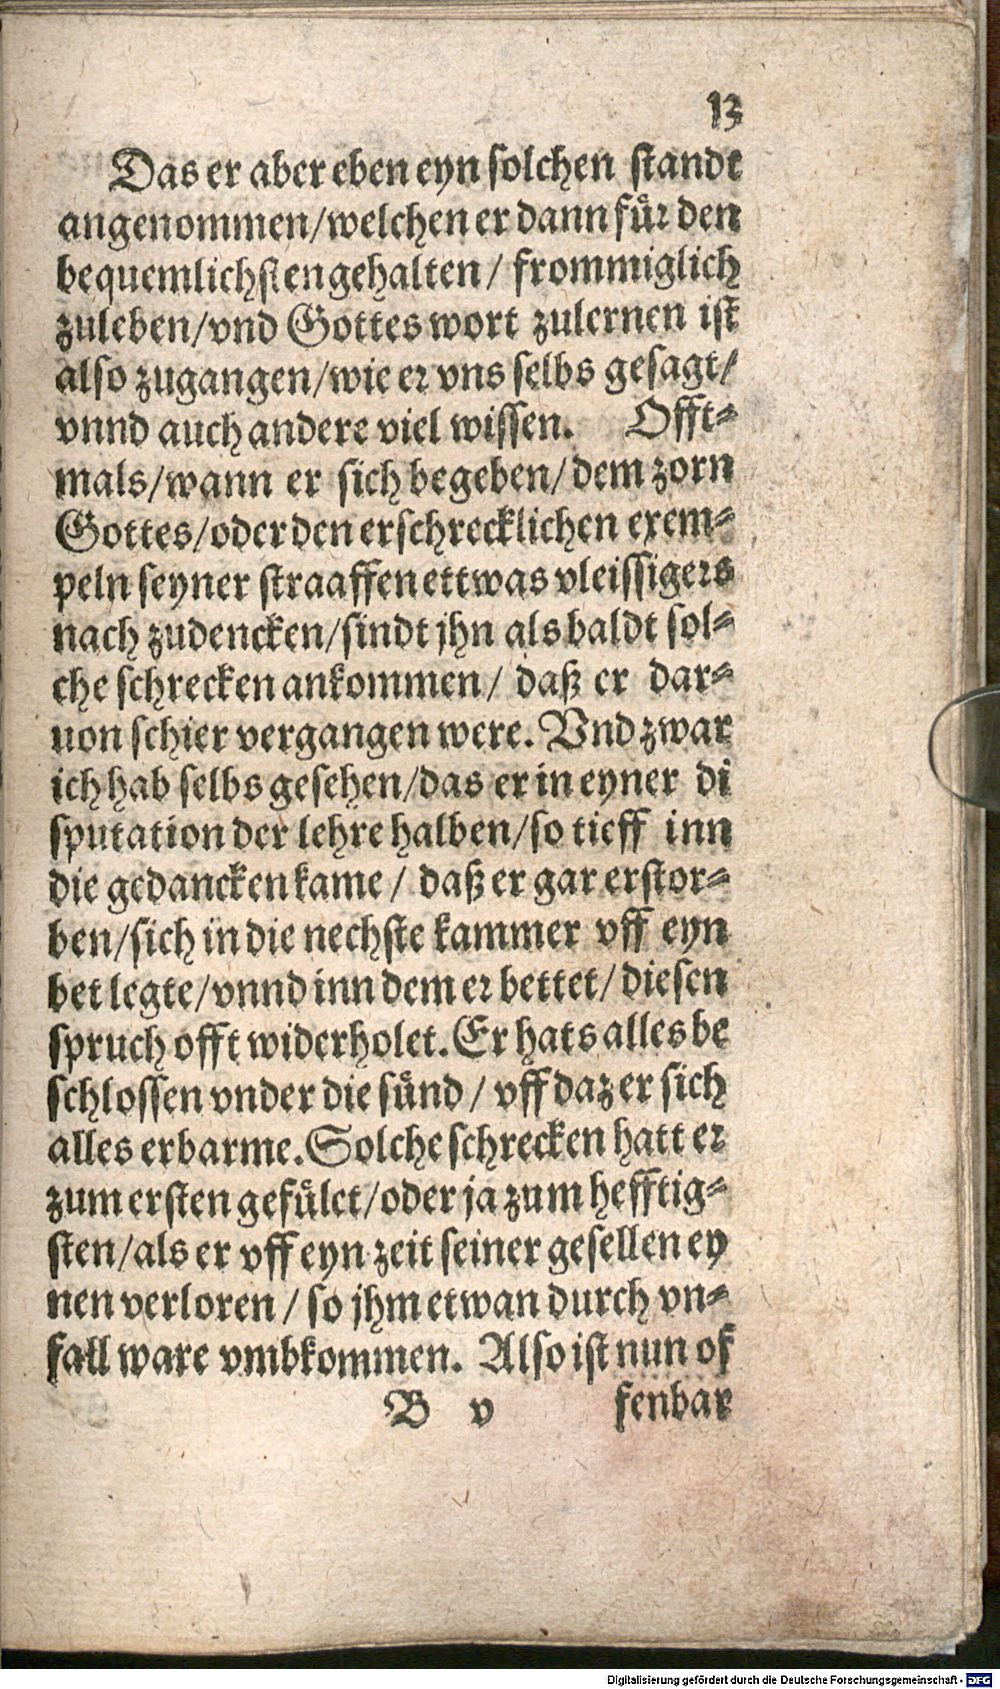 13
Das er aber eben eyn solchen standt
angenommen/welchen er dann fuͤr den
bequemlichsten gehalten/ frommiglich
zuleben/vnd Gottes wort zulernen ist
also zugangen/wie er vns selbs gesagt/
vnnd auch andere viel wissen. Offt⸗
mals/wann er sich begeben/dem zorn
Gottes/oder den erschrecklichen exem⸗
peln seyner straaffen ettwas vleissigers
nach zudencken/sindt jhn als baldt sol⸗
che schrecken ankommen/ daß er dar⸗
uon schier vergangen were. Vnd zwar
ich hab selbs gesehen/das er in eyner di
sputation der lehre halben/so tieff inn
die gedancken kame/ daß er gar erstor⸗
ben/sich in die nechste kammer vff eyn
bet legte/vnnd inn dem er bettet/diesen
spruch offt widerholet. Er hats alles be
schlossen vnder die suͤnd/ vff daz er sich
alles erbarme. Solche schrecken hatt er
zum ersten gefuͤlet/oder ja zum hefftig⸗
sten/als er vff eyn zeit seiner gesellen ey
nen verloren/ so jhm etwan durch vn⸗
fall ware vmbkommen. Also ist nun of
B v fenbar
Digitalisierung gefördert durch die Deutsche Forschungsgemeinschaft - DFG